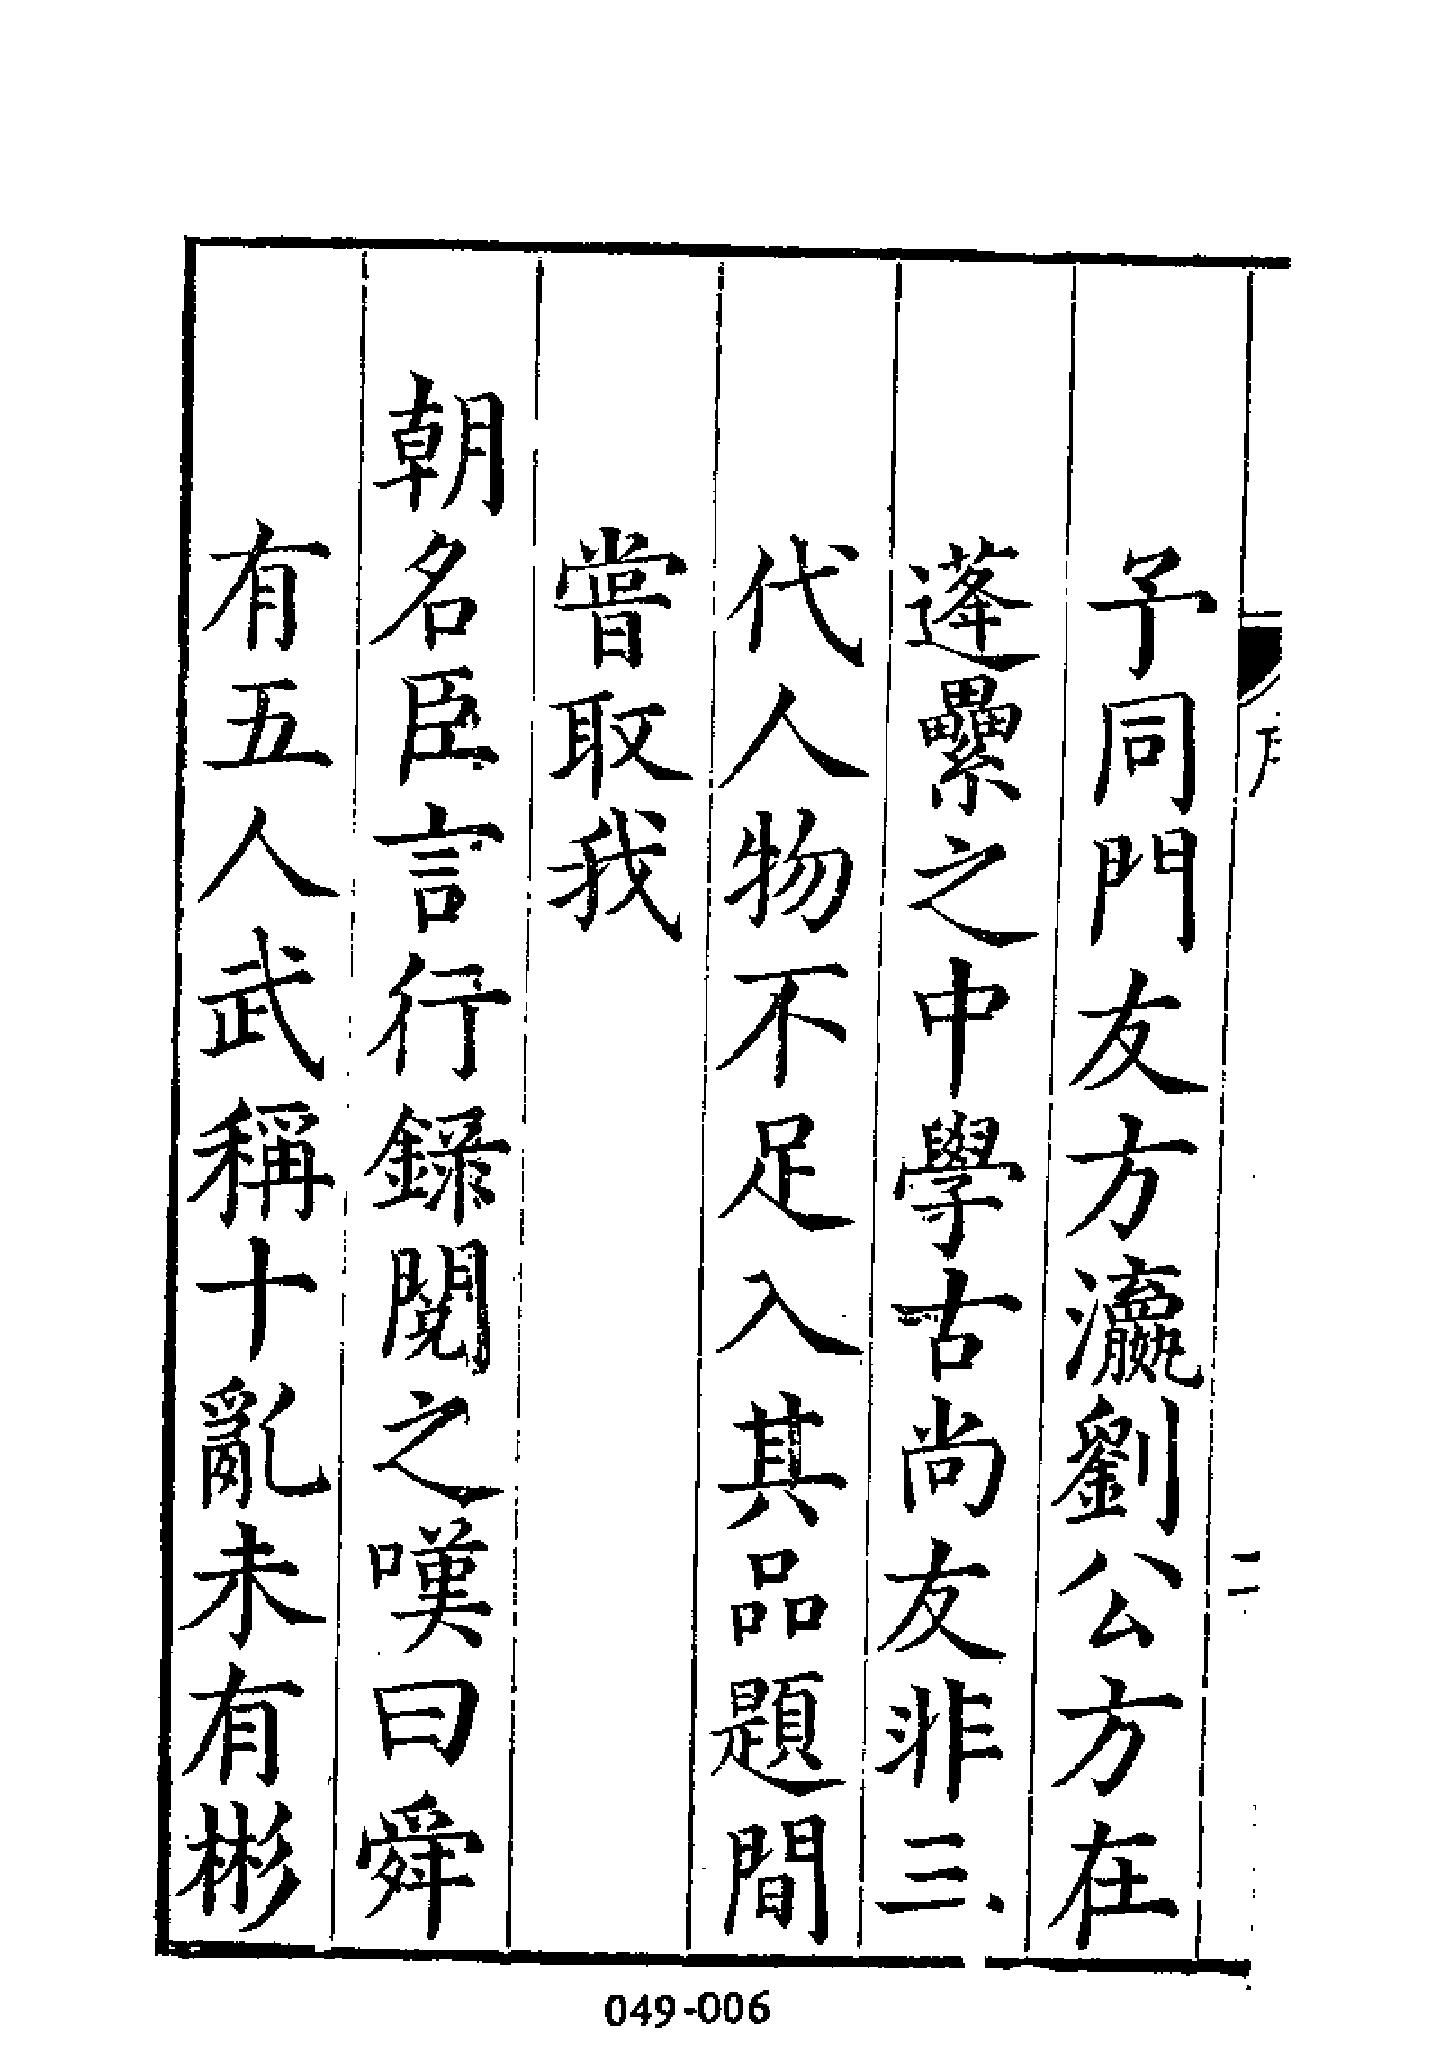 予同門友方瀛劉公方在
蓬纍之中學古尚友非三
代人物不足入其品題間
嘗取我
朝名臣言行錄閱之嘆曰舜
有五人武稱十亂未有彬
二
049-006